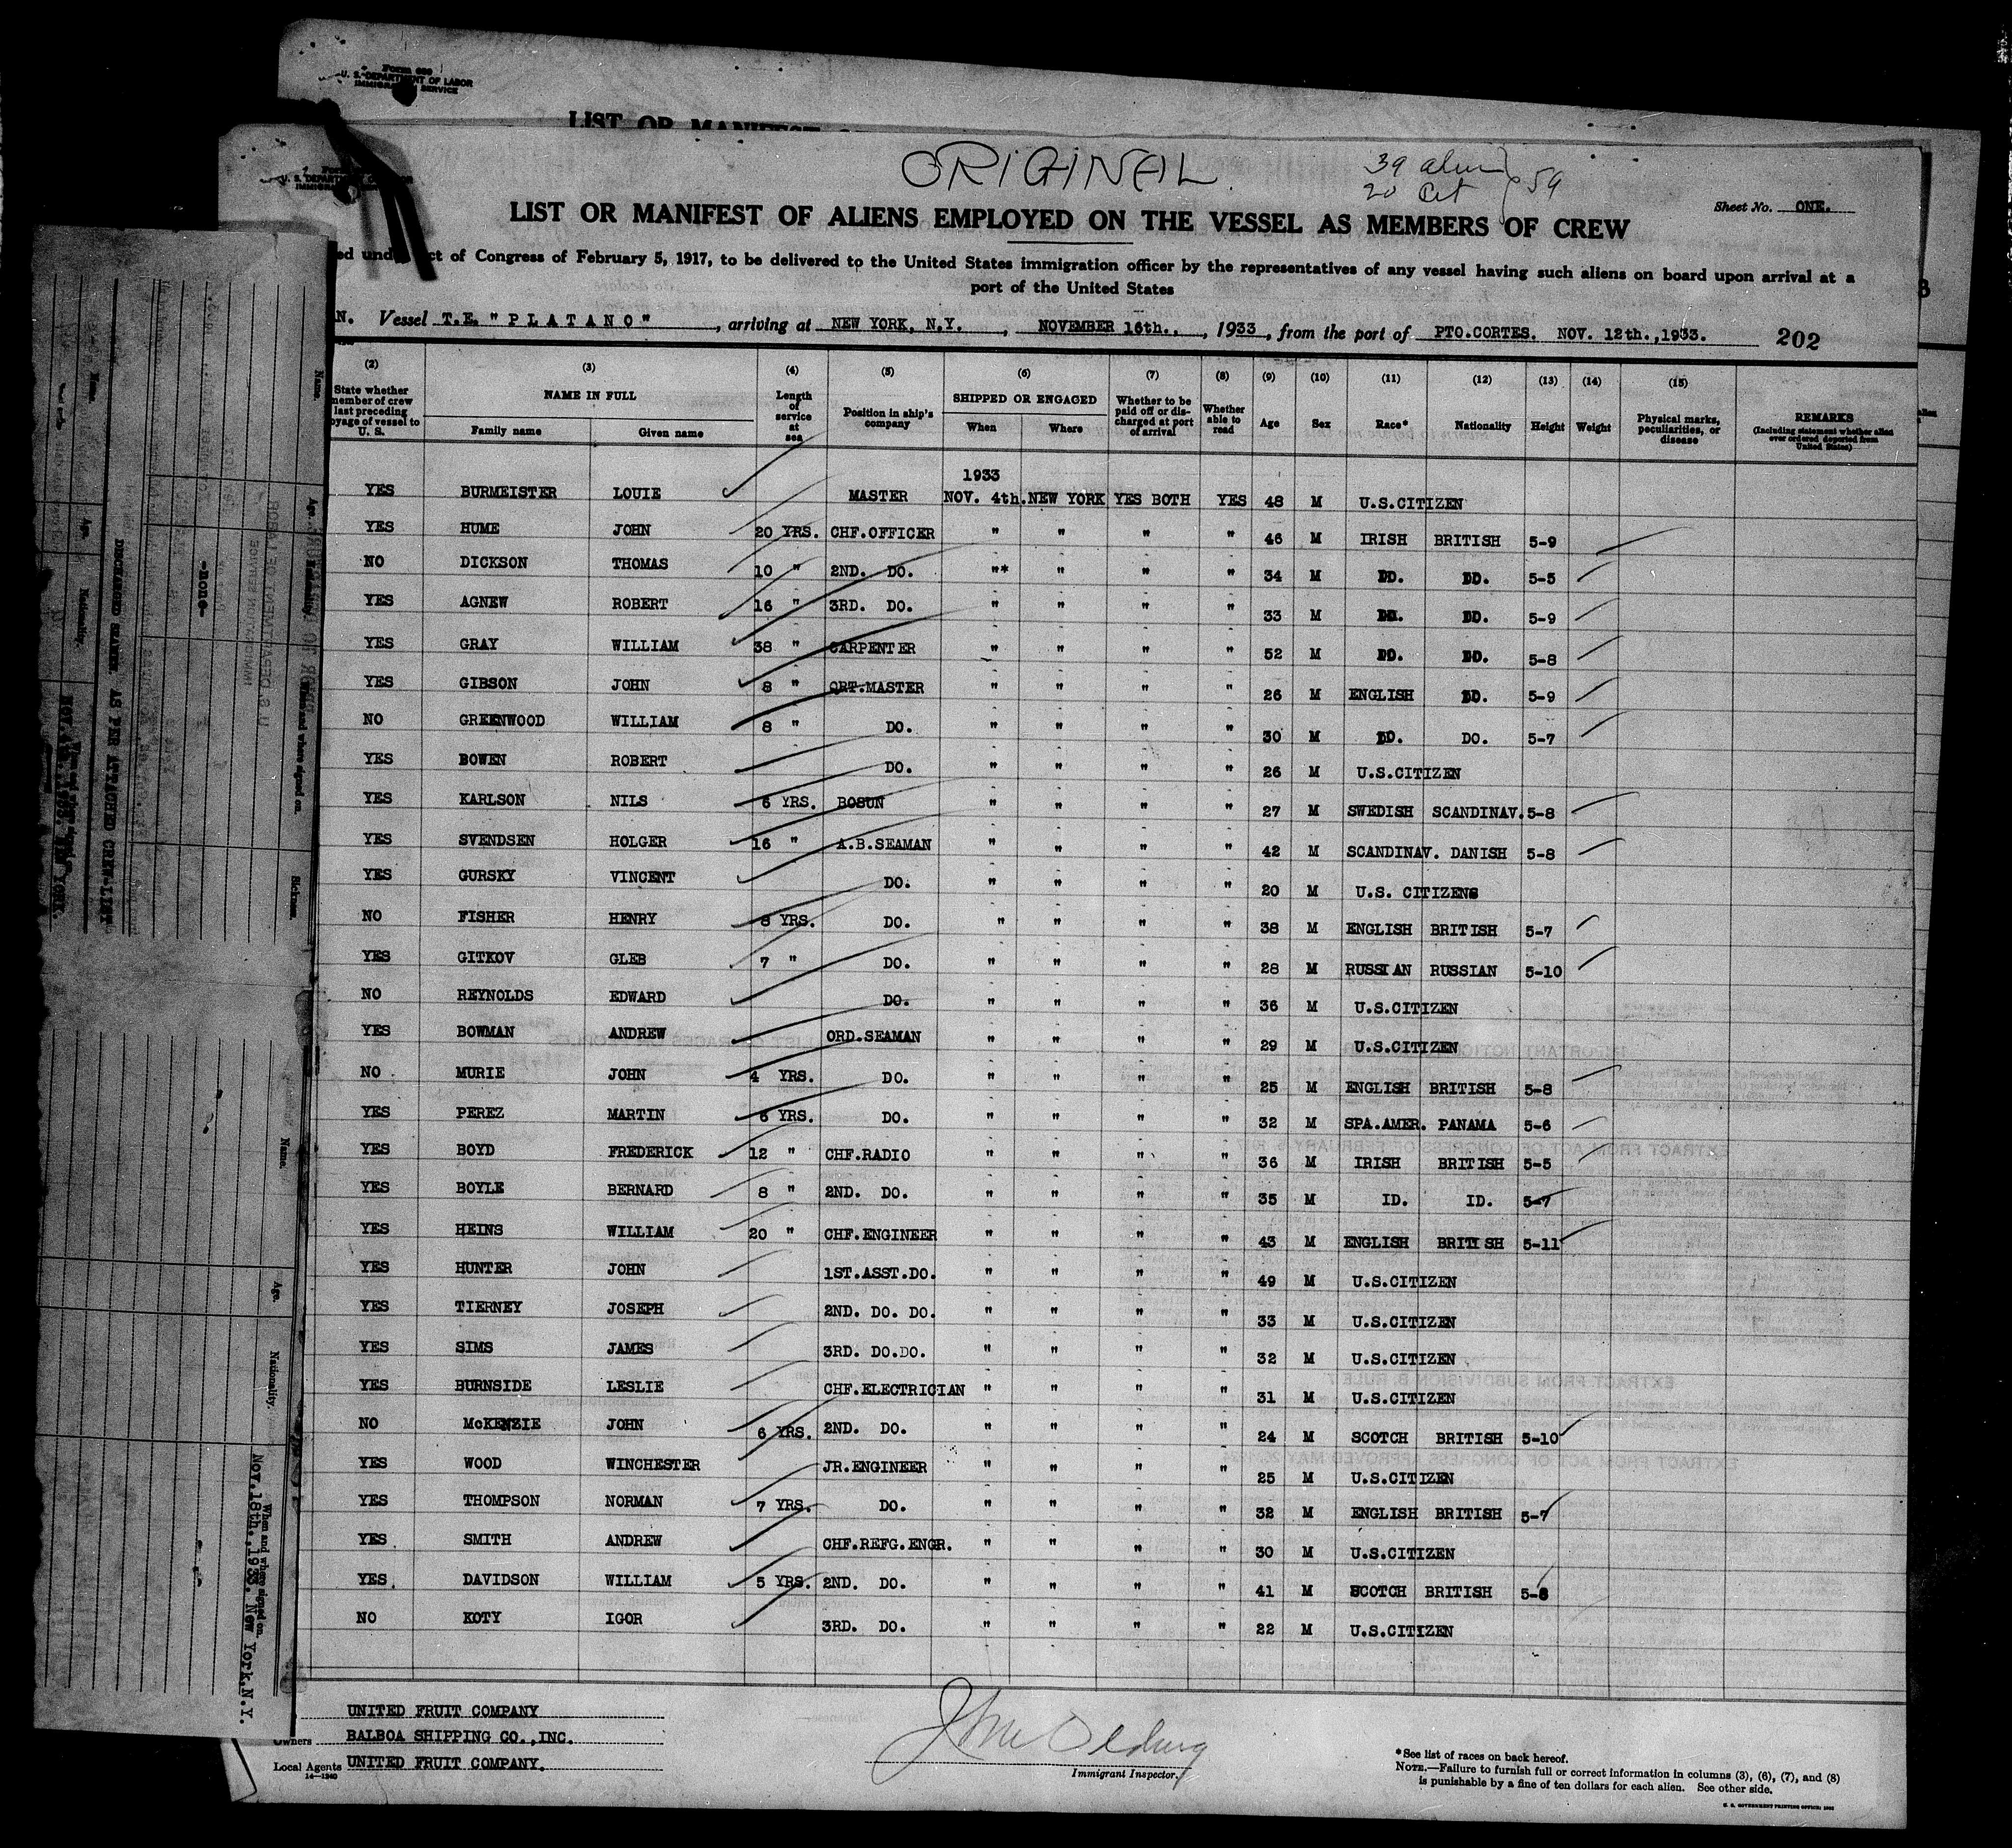 Form 680
U. S. DEPARTMENT OF LABOR
IMMIGRATION SERVICE
LIST OR MANIFEST
U. S. DEPARTMENT OF LABOR
ORIGINAL
39 alien
20 Cit
59
Sheet No. ONE.
LIST OR MANIFEST OF ALIENS EMPLOYED ON THE VESSEL AS MEMBERS OF CREW
ed under Act of Congress of February 5, 1917, to be delivered to the United States immigration officer by the representatives of any vessel having such aliens on board upon arrival at a
port of the United States
N. Vessel T.E. "PLATANO", arriving at NEW YORK, N.Y., NOVEMBER 16th., 1933, from the port of PTO.CORTES. NOV. 12th.,1933. 202
(2) (3) (4) (5) (6) (7) (8) (9) (10) (11) (12) (13) (14) (15)
State whether member of crew last preceding voyage of vessel to U. S. | NAME IN FULL | Family name | Given name | Length of service at sea | Position in ship's company | SHIPPED OR ENGAGED | When | Where | Whether to be paid off or discharged at port of arrival | Whether able to read | Age | Sex | Race* | Nationality | Height | Weight | Physical marks, peculiarities, or disease | REMARKS (Including statement whether alien ever ordered deported from United States)
1933
YES BURMEISTER LOUIE MASTER NOV. 4th. NEW YORK YES BOTH YES 48 M U.S.CITIZEN
YES HUME JOHN 20 YRS. CHF.OFFICER " " " " 46 M IRISH BRITISH 5-9
NO DICKSON THOMAS 10 " 2ND. DO. "* " " " 34 M DO. DO. 5-5
YES AGNEW ROBERT 16 " 3RD. DO. " " " " 33 M DO. DO. 5-9
YES GRAY WILLIAM 38 " CARPENTER " " " " 52 M DO. DO. 5-8
YES GIBSON JOHN 8 " QRT.MASTER " " " " 26 M ENGLISH DO. 5-9
NO GREENWOOD WILLIAM 8 " DO. " " " " 30 M DO. DO. 5-7
YES BOWEN ROBERT DO. " " " " 26 M U.S.CITIZEN
YES KARLSON NILS 6 YRS. BOSUN " " " " 27 M SWEDISH SCANDINAV. 5-8
YES SVENDSEN HOLGER 16 " A.B.SEAMAN " " " " 42 M SCANDINAV. DANISH 5-8
YES GURSKY VINCENT DO. " " " " 20 M U.S. CITIZENS
NO FISHER HENRY 8 YRS. DO. " " " " 38 M ENGLISH BRITISH 5-7
YES GITKOV GLEB 7 " DO. " " " " 28 M RUSSIAN RUSSIAN 5-10
NO REYNOLDS EDWARD DO. " " " " 36 M U.S.CITIZEN
YES BOWMAN ANDREW ORD.SEAMAN " " " " 29 M U.S.CITIZEN
NO MURIE JOHN 4 YRS. DO. " " " " 25 M ENGLISH BRITISH 5-8
YES PEREZ MARTIN 6 YRS. DO. " " " " 32 M SPA.AMER. PANAMA 5-6
YES BOYD FREDERICK 12 " CHF.RADIO " " " " 36 M IRISH BRITISH 5-5
YES BOYLE BERNARD 8 " 2ND. DO. " " " " 35 M ID. ID. 5-7
YES HEINS WILLIAM 20 " CHF.ENGINEER " " " " 43 M ENGLISH BRITISH 5-11
YES HUNTER JOHN 1ST.ASST.DO. " " " " 49 M U.S.CITIZEN
YES TIERNEY JOSEPH 2ND. DO. DO. " " " " 33 M U.S.CITIZEN
YES SIMS JAMES 3RD. DO.DO. " " " " 32 M U.S.CITIZEN
YES BURNSIDE LESLIE CHF.ELECTRICIAN " " " " 31 M U.S.CITIZEN
NO McKENZIE JOHN 6 YRS. 2ND. DO. " " " " 24 M SCOTCH BRITISH 5-10
YES WOOD WINCHESTER JR.ENGINEER " " " " 25 M U.S.CITIZEN
YES THOMPSON NORMAN 7 YRS. DO. " " " " 32 M ENGLISH BRITISH 5-7
YES SMITH ANDREW CHF.REFG.ENGR. " " " " 30 M U.S.CITIZEN
YES. DAVIDSON WILLIAM 5 YRS. 2ND. DO. " " " " 41 M SCOTCH BRITISH 5-8
NO KOTY IGOR 3RD. DO. " " " " 22 M U.S.CITIZEN
UNITED FRUIT COMPANY
Owners BALBOA SHIPPING CO.,INC.
Local Agents UNITED FRUIT COMPANY.
14—1240
Immigrant Inspector.
*See list of races on back hereof.
NOTE.—Failure to furnish full or correct information in columns (3), (6), (7), and (8)
is punishable by a fine of ten dollars for each alien. See other side.
U. S. GOVERNMENT PRINTING OFFICE
Name. Age. Nationality. When and where signed on. Sickness.
-None-
DISCHARGED SEAMEN. AS PER ATTACHED CREW-LIST
Name. Age. Nationality. When and where signed on.
NOV. 18th. 1933. New York.N.Y.
U. S. DEPARTMENT OF LABOR
IMMIGRATION SERVICE